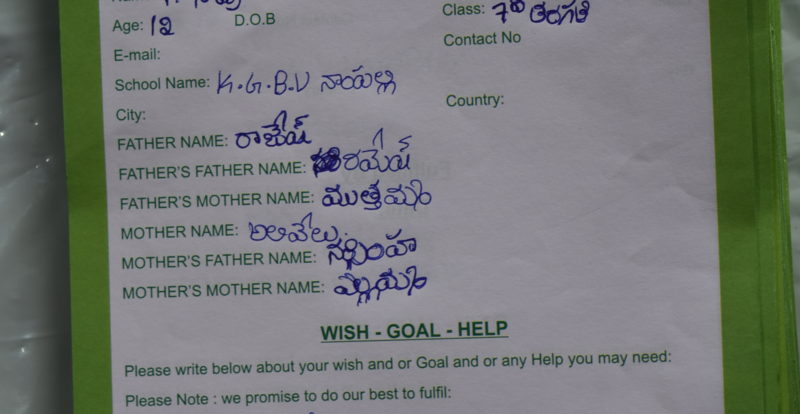 Class: 7th తరగతి
Age: 12 D.O.B
Contact No
E-mail:
School Name: K.G.B.V నాంపల్లి
City:
Country:
FATHER NAME: రాజేష్
FATHER'S FATHER NAME: రమేష్
FATHER'S MOTHER NAME: ముత్తమ్మ
MOTHER NAME: అలివేలు
MOTHER'S FATHER NAME: నర్సింహ
MOTHER'S MOTHER NAME:
WISH - GOAL - HELP
Please write below about your wish and or Goal and or any Help you may need:
Please Note : we promise to do our best to fulfil: